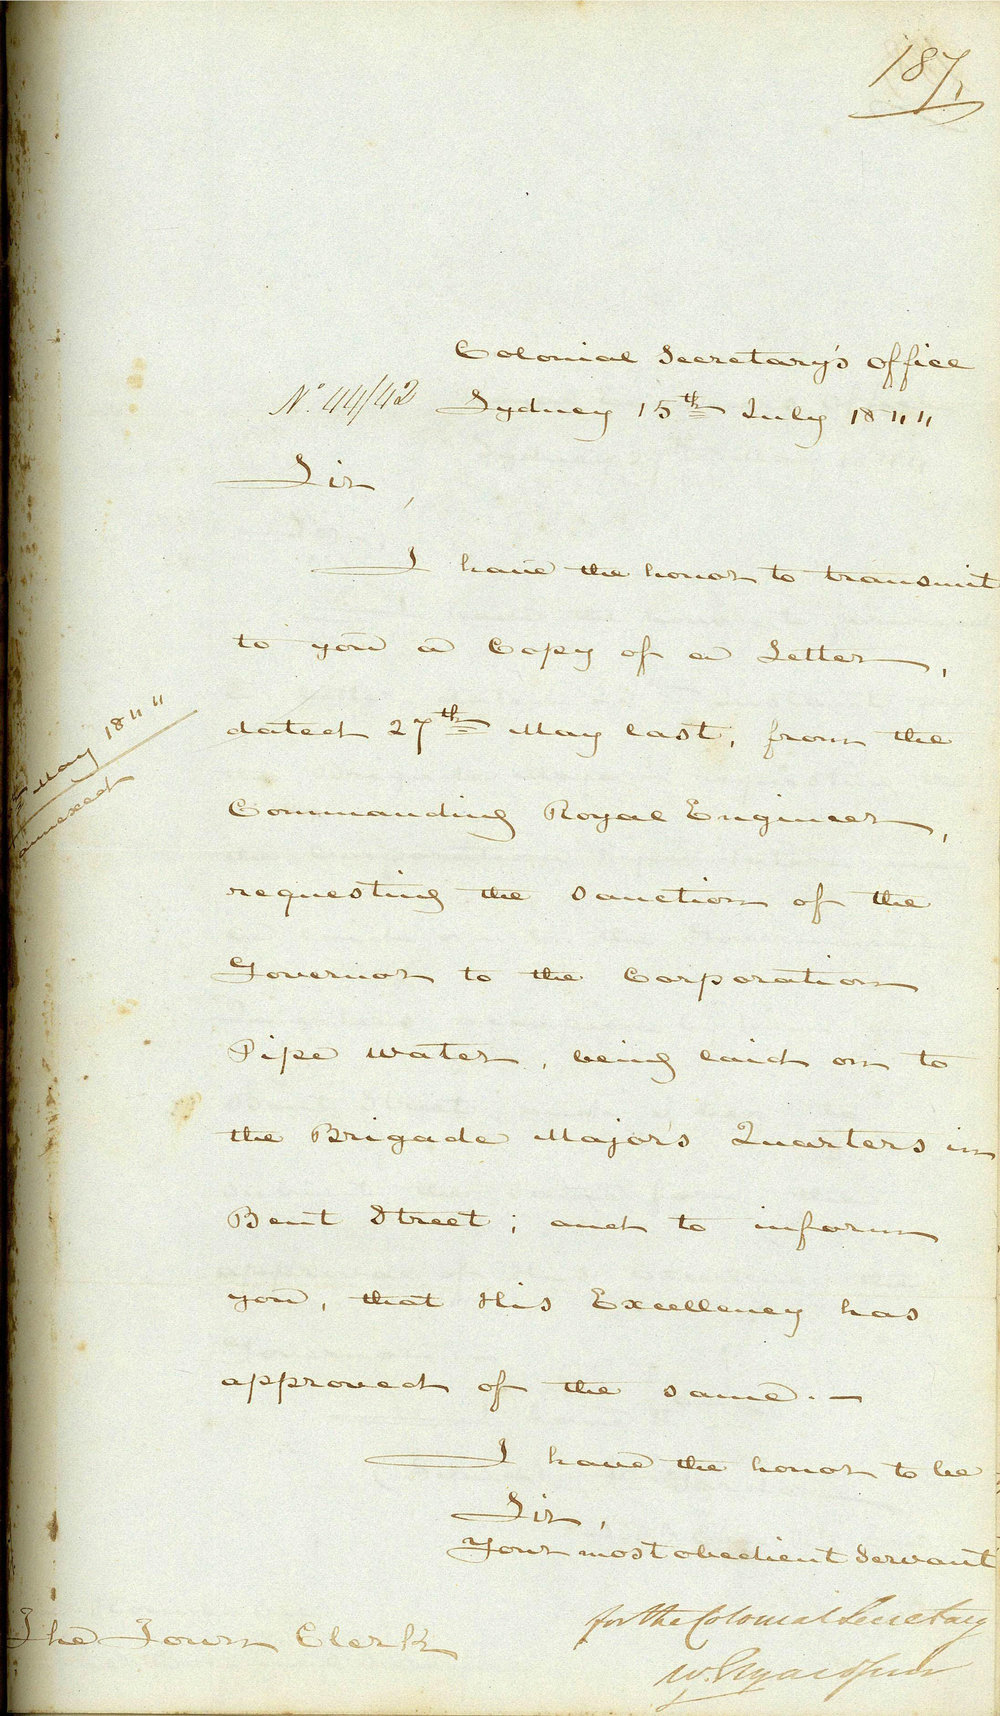 187,
Colonial Secretary's Office
No. 44/42 Sydney 15th July 18"""
Sir,
I have the honor to transmit
to you a Copy of a Letter,
dated 27th May last, from the
May 18"""
annexed
Commanding Royal Engineer,
requesting the sanction of the
Governor to the Corporation
Pipe water, being laid on to
the Brigade Majors Quarters in
Bent Street; and to inform
you, that His Excellency has
approved of the same.—
I have the honor to be
Sir,
Your most obedient Servant
for the Colonial Secretary
W.
The Town Clerk